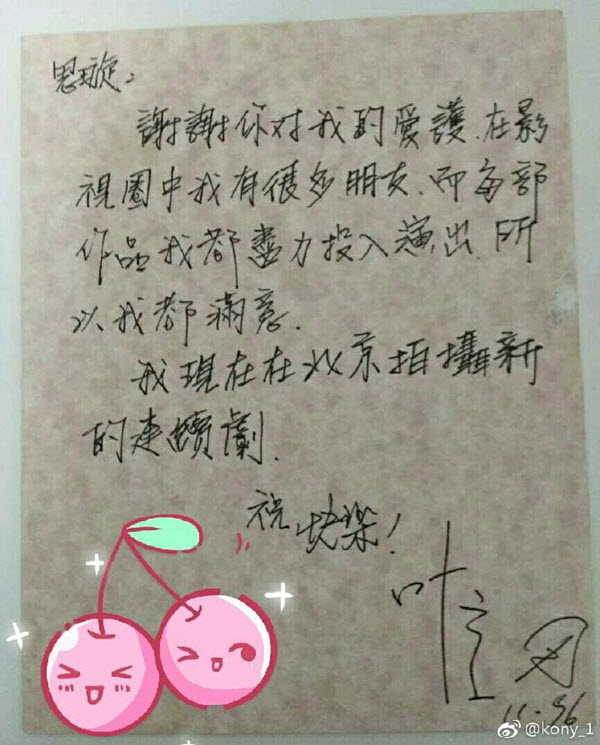 思璇：
謝謝你对我的爱護.在影
視圈中我有很多朋友.而每部
作品我都盡力投入演出.所
以我都滿意.
我現在在北京拍攝新
的連續劇.
祝快樂！
11.96
@kony_1